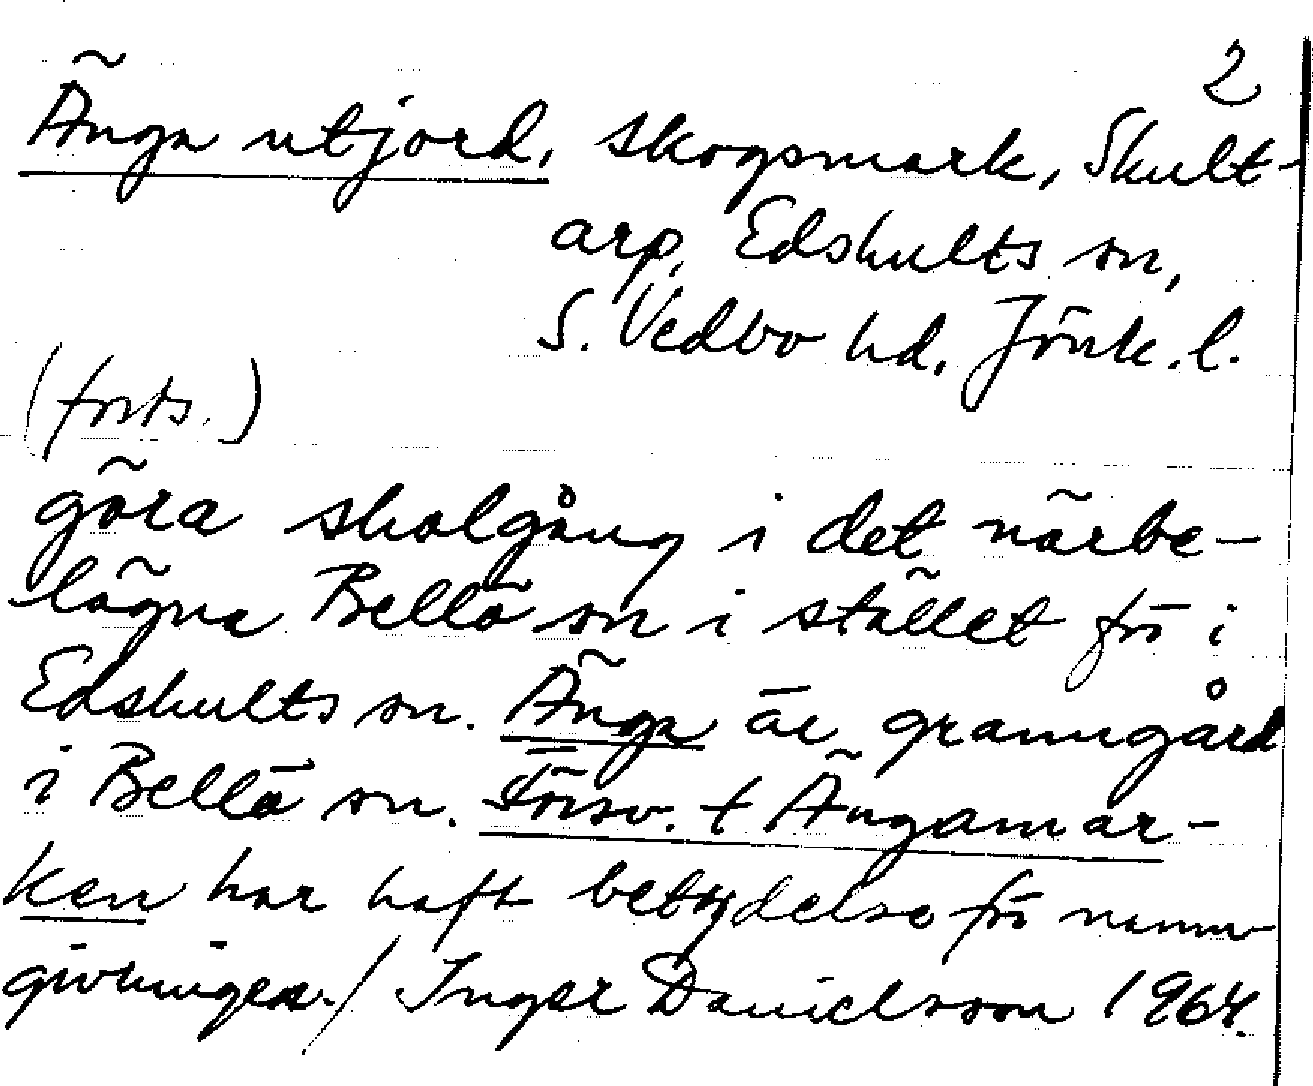 2
Änga utjord, skogsmark, Skult-
arp, Edshults sn,
S. Vedbo hd. Jönk. l.
(forts.)
göra skolgång i det närbe-
lägna Bellö sn i stället för i
Edshults sn. Änga är granngård
i Bellö sn. Försv. t Ängamar-
ken har haft betydelse för namn-
givningen./ Inger Danielsson 1964.